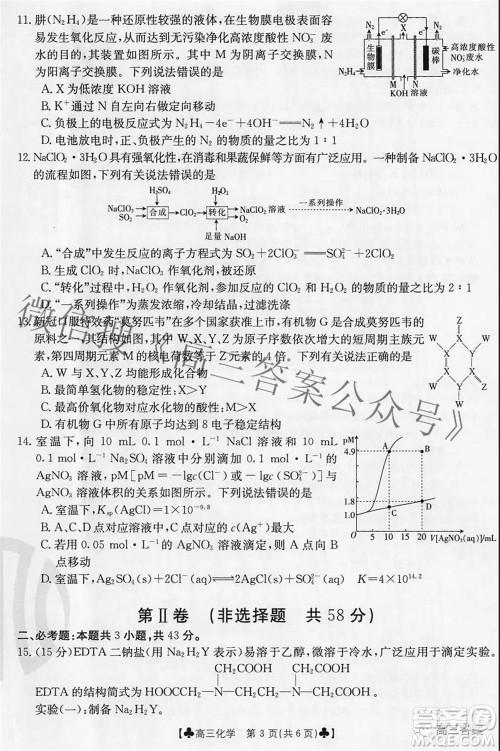 11. 肼(N₂H₄)是一种还原性较强的液体，在生物膜电极表面容
易发生氧化反应，从而达到无污染净化高浓度酸性 NO₃⁻ 废水
的目的。其装置如图所示。其中 M 为阴离子交换膜，N
为阳离子交换膜。下列说法错误的是
A. X 为低浓度 KOH 溶液
B. K⁺ 通过 N 由左向右定向移动
C. 负极上的电极反应式为 N₂H₄-4e⁻+4OH⁻══N₂↑+4H₂O
D. 电池放电时，正、负极产生的 N₂ 的物质的量之比为 1∶1
N₂
N₂
生物膜
碳棒
高浓度酸性
NO₃⁻废水
N₂H₄
净化水
M
X
N
KOH 溶液
12. NaClO₂·3H₂O 具有强氧化性，在消毒和果蔬保鲜等方面应用广泛。一种制备 NaClO₂·3H₂O
的流程如下，下列有关说法错误的是
H₂SO₄
H₂O₂
NaClO₃
SO₂
合成
ClO₂
转化
NaClO₂
一系列操作
NaClO₂·3H₂O
足量 NaOH
A. “合成”中发生反应的离子方程式为 SO₂+2ClO₃⁻══SO₄²⁻+2ClO₂
B. 生成 ClO₂ 时，NaClO₃ 作氧化剂，被还原
C. “转化”过程中，ClO₂ 作氧化剂，ClO₂ 和 H₂O₂ 的物质的量之比为 2∶1
D. “一系列操作”为蒸发浓缩，冷却结晶，过滤洗涤
13. 新冠口服特效药“莫努匹韦”在多个国家获准上市，有机物 G 是合成莫努匹韦的
原料之一，其结构如图，其中 W、X、Y、Z 为原子序数依次增大的短周期主族元
素，第四周期元素 M 的核电荷数等于 Z 元素的 4 倍。下列有关叙述正确的是
A. W 与 X、Y、Z 均能形成化合物
B. 最简单氢化物的稳定性：X＞Y
C. 最高价氧化物对应水化物的酸性：M＞X
D. 有机物 G 中的所有原子均达到 8 电子稳定结构
Z
W
Y
X
Y
W
X
X
W
X
Z
W
14. 室温下，向 10 mL 0.1 mol·L⁻¹ NaCl 溶液和 10 mL
0.1 mol·L⁻¹ Na₂SO₄ 溶液中分别滴加 0.1 mol·L⁻¹
AgNO₃ 溶液，pM[pM=-lgc(Cl⁻)或-lgc(SO₄²⁻)]与
AgNO₃ 溶液体积的关系如图所示。下列说法错误的是
A. 室温下，Kₛₚ(AgCl)=1×10⁻⁹·⁸
B. A、C、D 点对应溶液中，c(Ag⁺)最大的为 D 点
C. 若用 0.05 mol·L⁻¹ 的 NaCl 溶液代替原 NaCl 溶液与
AgNO₃ 溶液滴定，则滴定终点由 A 点移至 B 点
D. 室温下，Ag₂SO₄(s)+2Cl⁻(aq)⇌2AgCl(s)+SO₄²⁻(aq)　K=4×10¹⁴·²
pM
4.9
1.8
1.0
0
10
20
A
B
C
D
V[AgNO₃(aq)]/mL
第Ⅱ卷 (非选择题 共 58 分)
二、必考题：本题共 3 小题，共 43 分。
15. (15 分)EDTA 二钠盐(用 Na₂H₂Y 表示)易溶于乙醇，微溶于冷水，广泛应用于滴定实验。
CH₂COOH　CH₂COOH
EDTA 的结构简式为 HOOCH₂C—N—CH₂CH₂—N—CH₂COOH。
实验(一)：制备 Na₂H₂Y。
♣高三化学 第 3 页(共 6 页)♣
微信搜《高三答案公众号》
高三答案